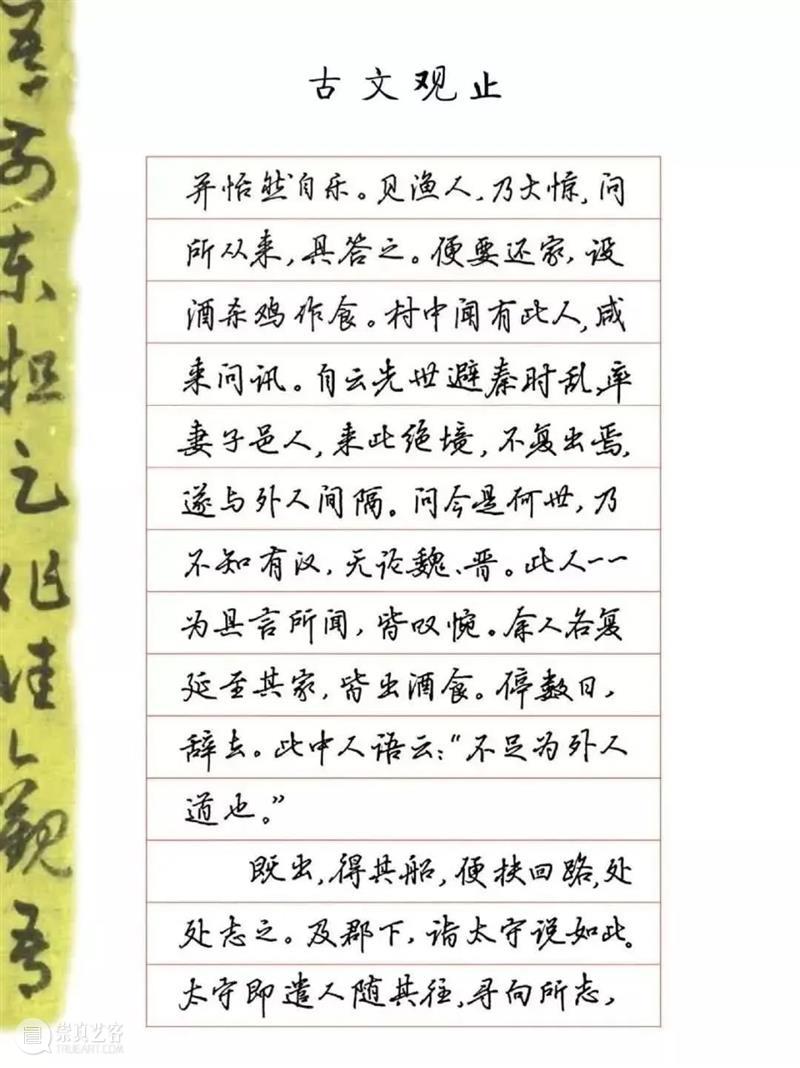 古文观止
并怡然自乐。见渔人，乃大惊，问
所从来，具答之。便要还家，设
酒杀鸡作食。村中闻有此人，咸
来问讯。自云先世避秦时乱，率
妻子邑人，来此绝境，不复出焉，
遂与外人间隔。问今是何世，乃
不知有汉，无论魏、晋。此人一一
为具言所闻，皆叹惋。余人各复
延至其家，皆出酒食。停数日，
辞去。此中人语云：“不足为外人
道也。”
既出，得其船，便扶回路，处
处志之。及郡下，诣太守说如此。
太守即遣人随其往，寻向所志，
崇真艺客
TRUEART.COM